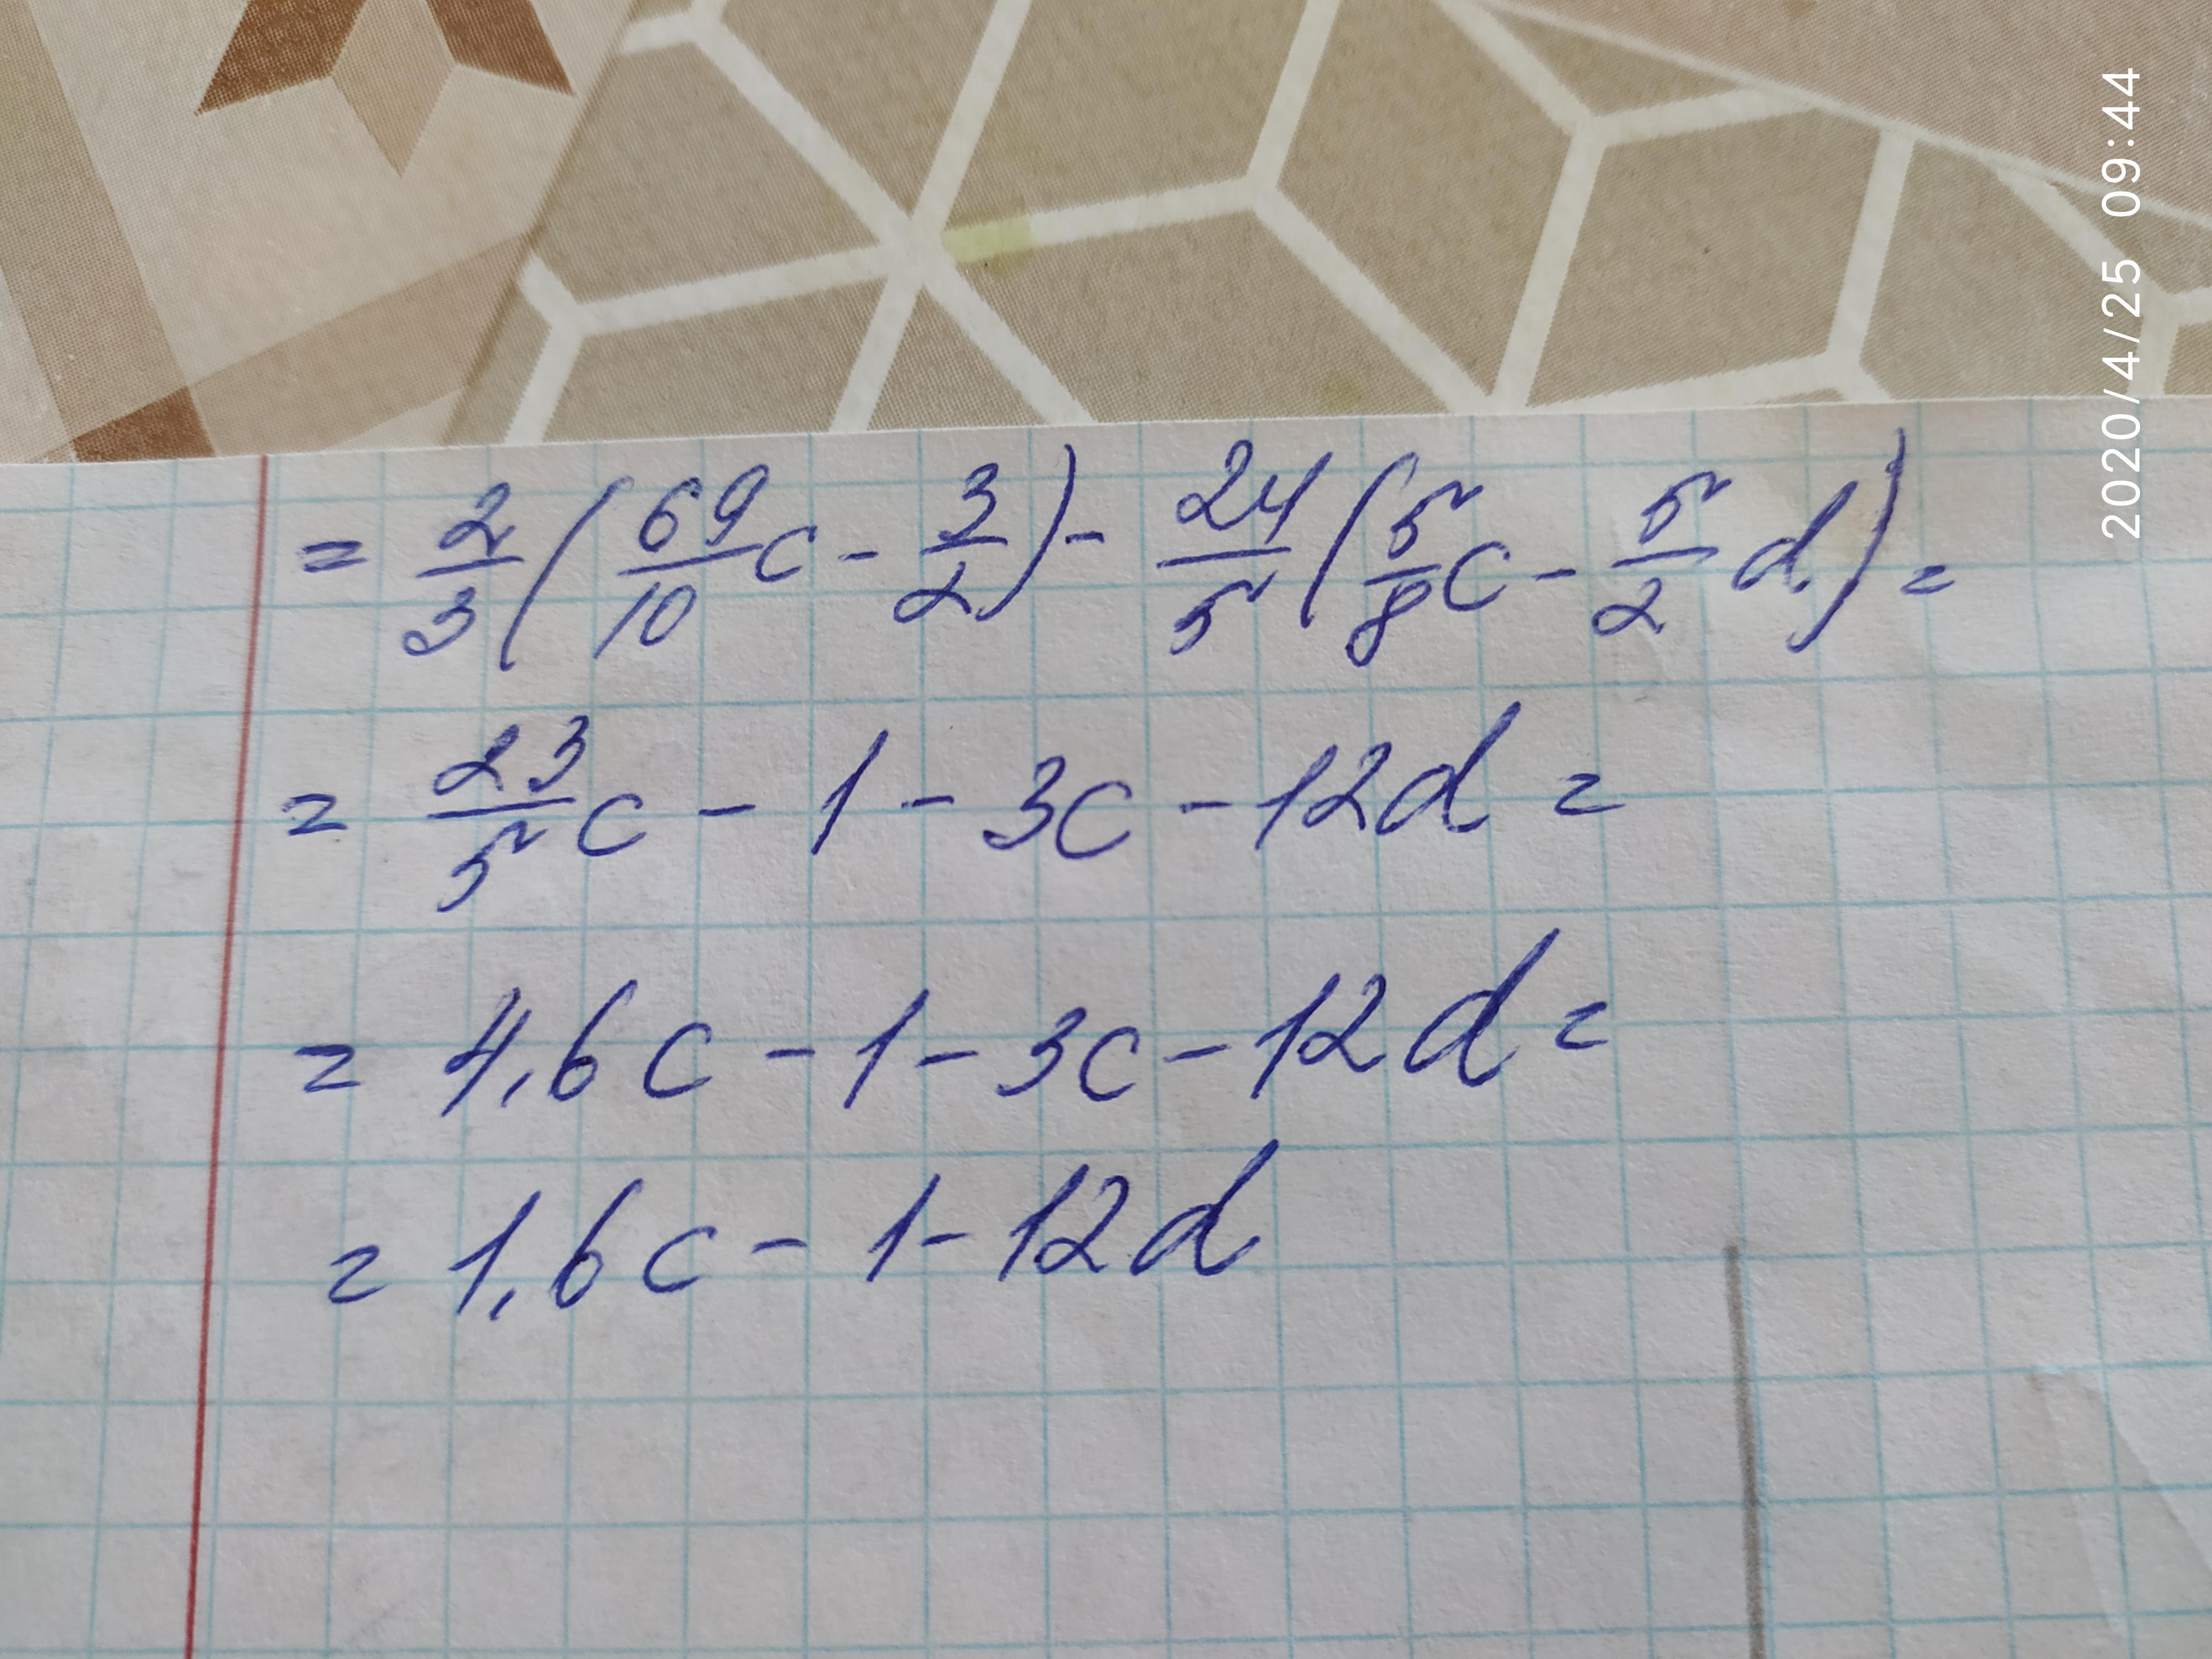 = 2/3 ( 69/10 c - 3/2 ) - 24/5 ( 5/8 c - 5/2 d ) =
= 23/5 c - 1 - 3c - 12d =
= 4,6c - 1 - 3c - 12d =
= 1,6c - 1 - 12d
2020/4/25 09:44